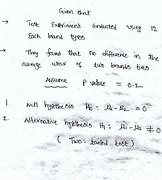 Given that
→ Test Experiment conducted using 12
Such brand types
→ They found that no difference in the
average wear of two brands tires.
Assume P value = 0.2
1. Null hypothesis H₀ : μ₁ - μ₂ = 0
2. Alternative hypothesis H₁ : μ₁ - μ₂ ≠ 0
( Two - tailed test )